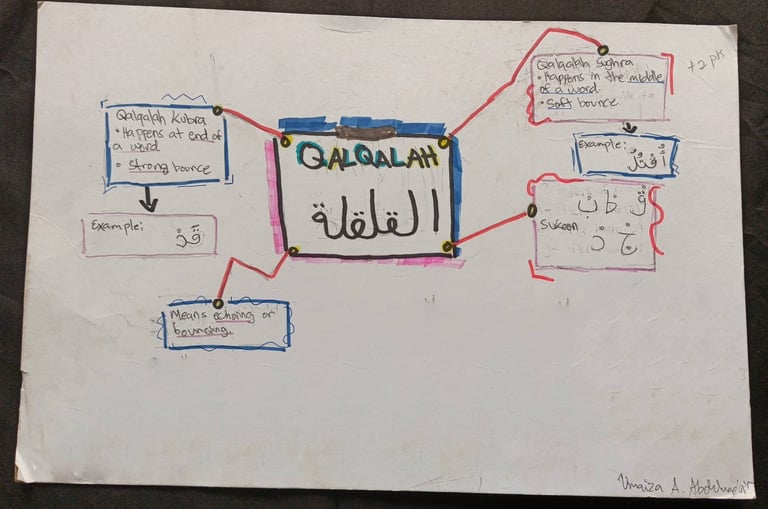 QALQALAH
القلقلة
Qalqalah Kubra
• Happens at end of
a word
• Strong bounce
Example:
قَدْ
Means echoing or
bouncing.
Qalqalah Sughra
• Happens in the middle
of a word
• Soft bounce
+2 pts
Example:
قْ طْ بْ
Sukoon
جْ دْ
Umaiza A.